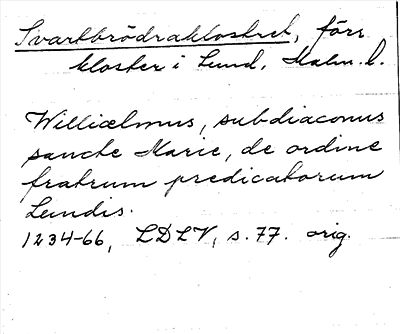 Svartbrödraklostret, förs
kloster i Lund, Malm. l.
Williælmus, subdiaconus
sancte Marie, de ordine
fratrum predicatorum
Lundis.
1234-66, LDLV, s. 77. orig.